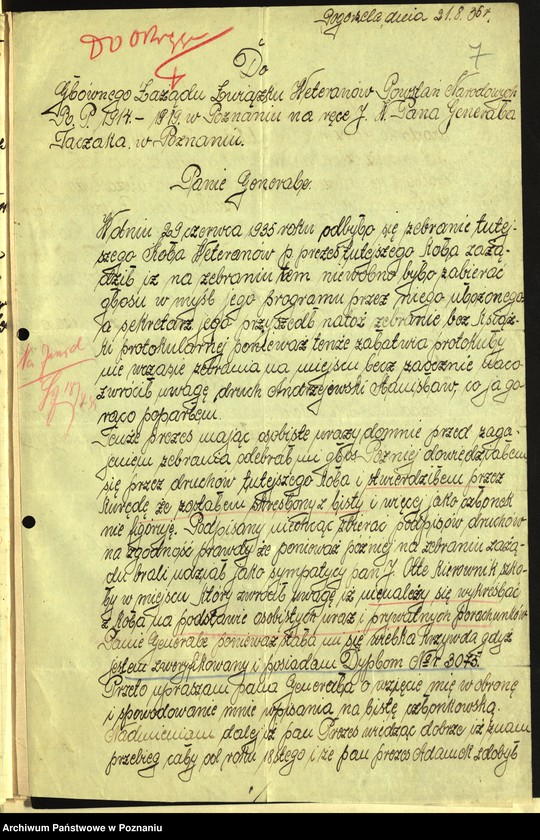 Pogorzela, dnia 21.8.35r.
7
Do
Głównego Zarządu Związku Weteranów Powstań Narodowych
R. P. 1914. - 1819. w Poznaniu na ręce J. W. Pana Generała
Taczaka. w Poznaniu.
Panie Generale.
W dniu 29 czerwca 1935 roku odbyło się zebranie tutej-
szego Koła Weteranów p. prezes tutejszego Koła zażą-
dził iż na zebraniu tem niewolno było zabierać
głosu w myśl jego programu przez niego ułożonego
a sekretarz jego przyszedł natoż zebranie bez Książ-
ki protokularnej ponieważ tenże załatwia protokuły
nie wczasie zebrania na miejscu lecz zaocznie naco
zwrócił uwagę druch Andrzejewski Stanisław, co ja go-
rąco poparłem.
Tenże prezes mając osobiste urazy domnie przed zaga-
jeniem zebrania odebrał mi głos Pozniej dowiedziałem
się przez druchów tutejszego Koła i stwierdziłem przez
Kurędę że zostałem skreślony z listy i więcej jako członek
nie figoruję. Podpisany mógłbym zbierać podpisów druchów
na zgodność prawdy że ponieważ pozniej na zebraniu zażą-
du brali udział jako sympatycy pan J. Otte Kierownik szko-
ły w miejscu który zwrócił uwagę iż nienależy się wykreślać
z Koła na podstawie osobistych uraz i prywatnych porachunków
Panie Generale ponieważ stała mi się wielka krzywda gdyż
jestem zweryfikowany i posiadam Dyplom Nr 3045.
Przeto upraszam pana Generała o wzięcie mię w obronę
i spowodowanie mnie wpisania na listę członkowską.
Nadmieniam dalej iż pan Prezes widząc dobrze iż znam
przebieg cały od roku 18stego i że pan prezes Adamek zdobył